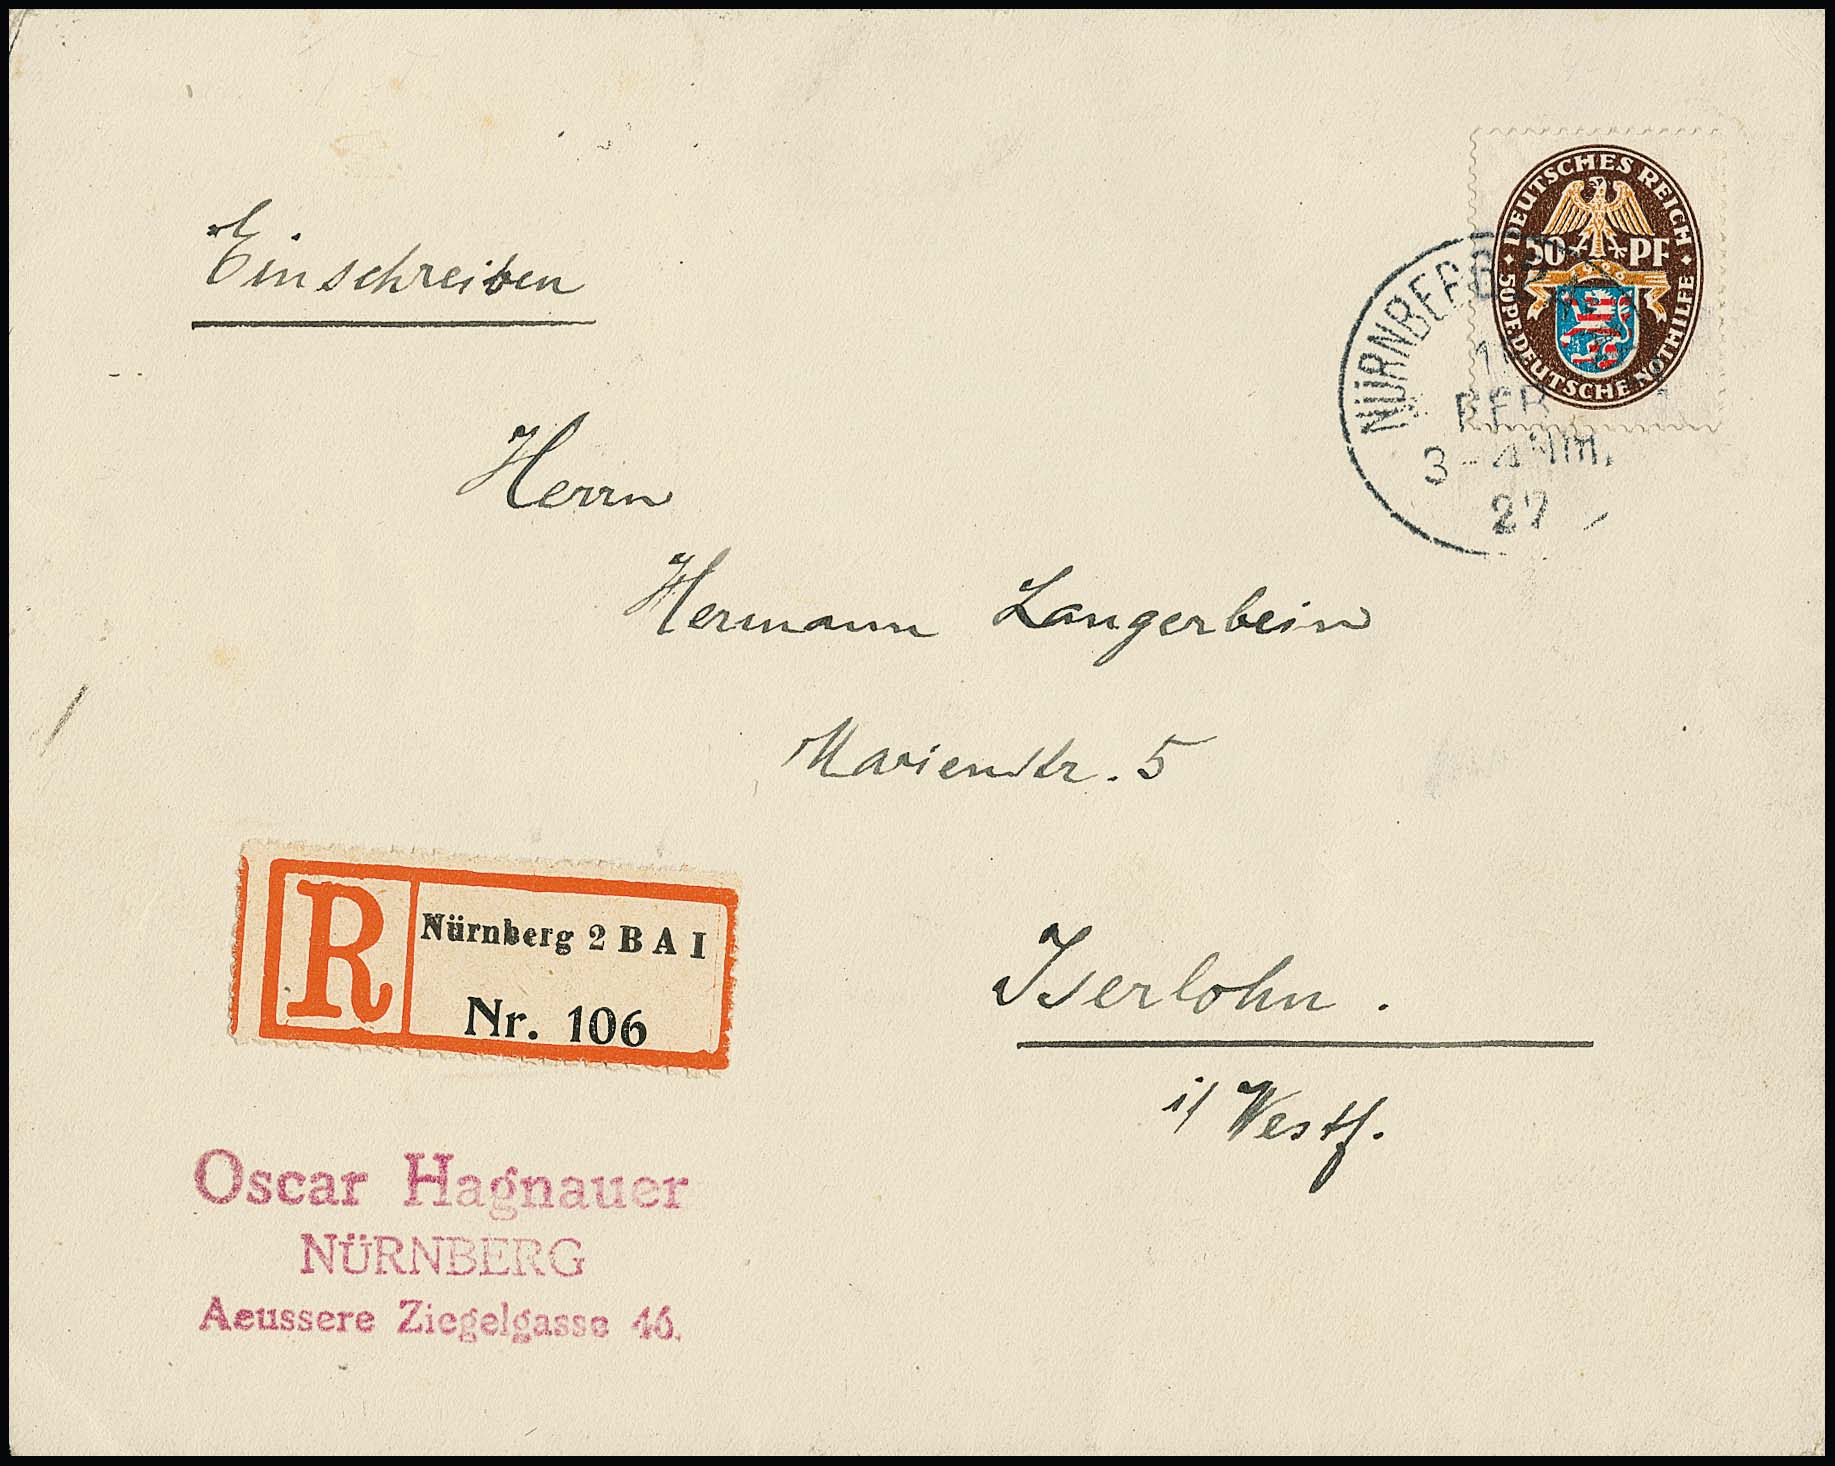 Einschreiben
DEUTSCHES REICH
50 PF
50 PF DEUTSCHE NOTHILFE
NÜRNBERG
3-4 Nm.
27
Herrn
Hermann Langerbein
Marienstr. 5
R
Nürnberg 2 B A I
Nr. 106
Iserlohn.
i/ Westf.
Oscar Hagnauer
NÜRNBERG
Aeussere Ziegelgasse 46.